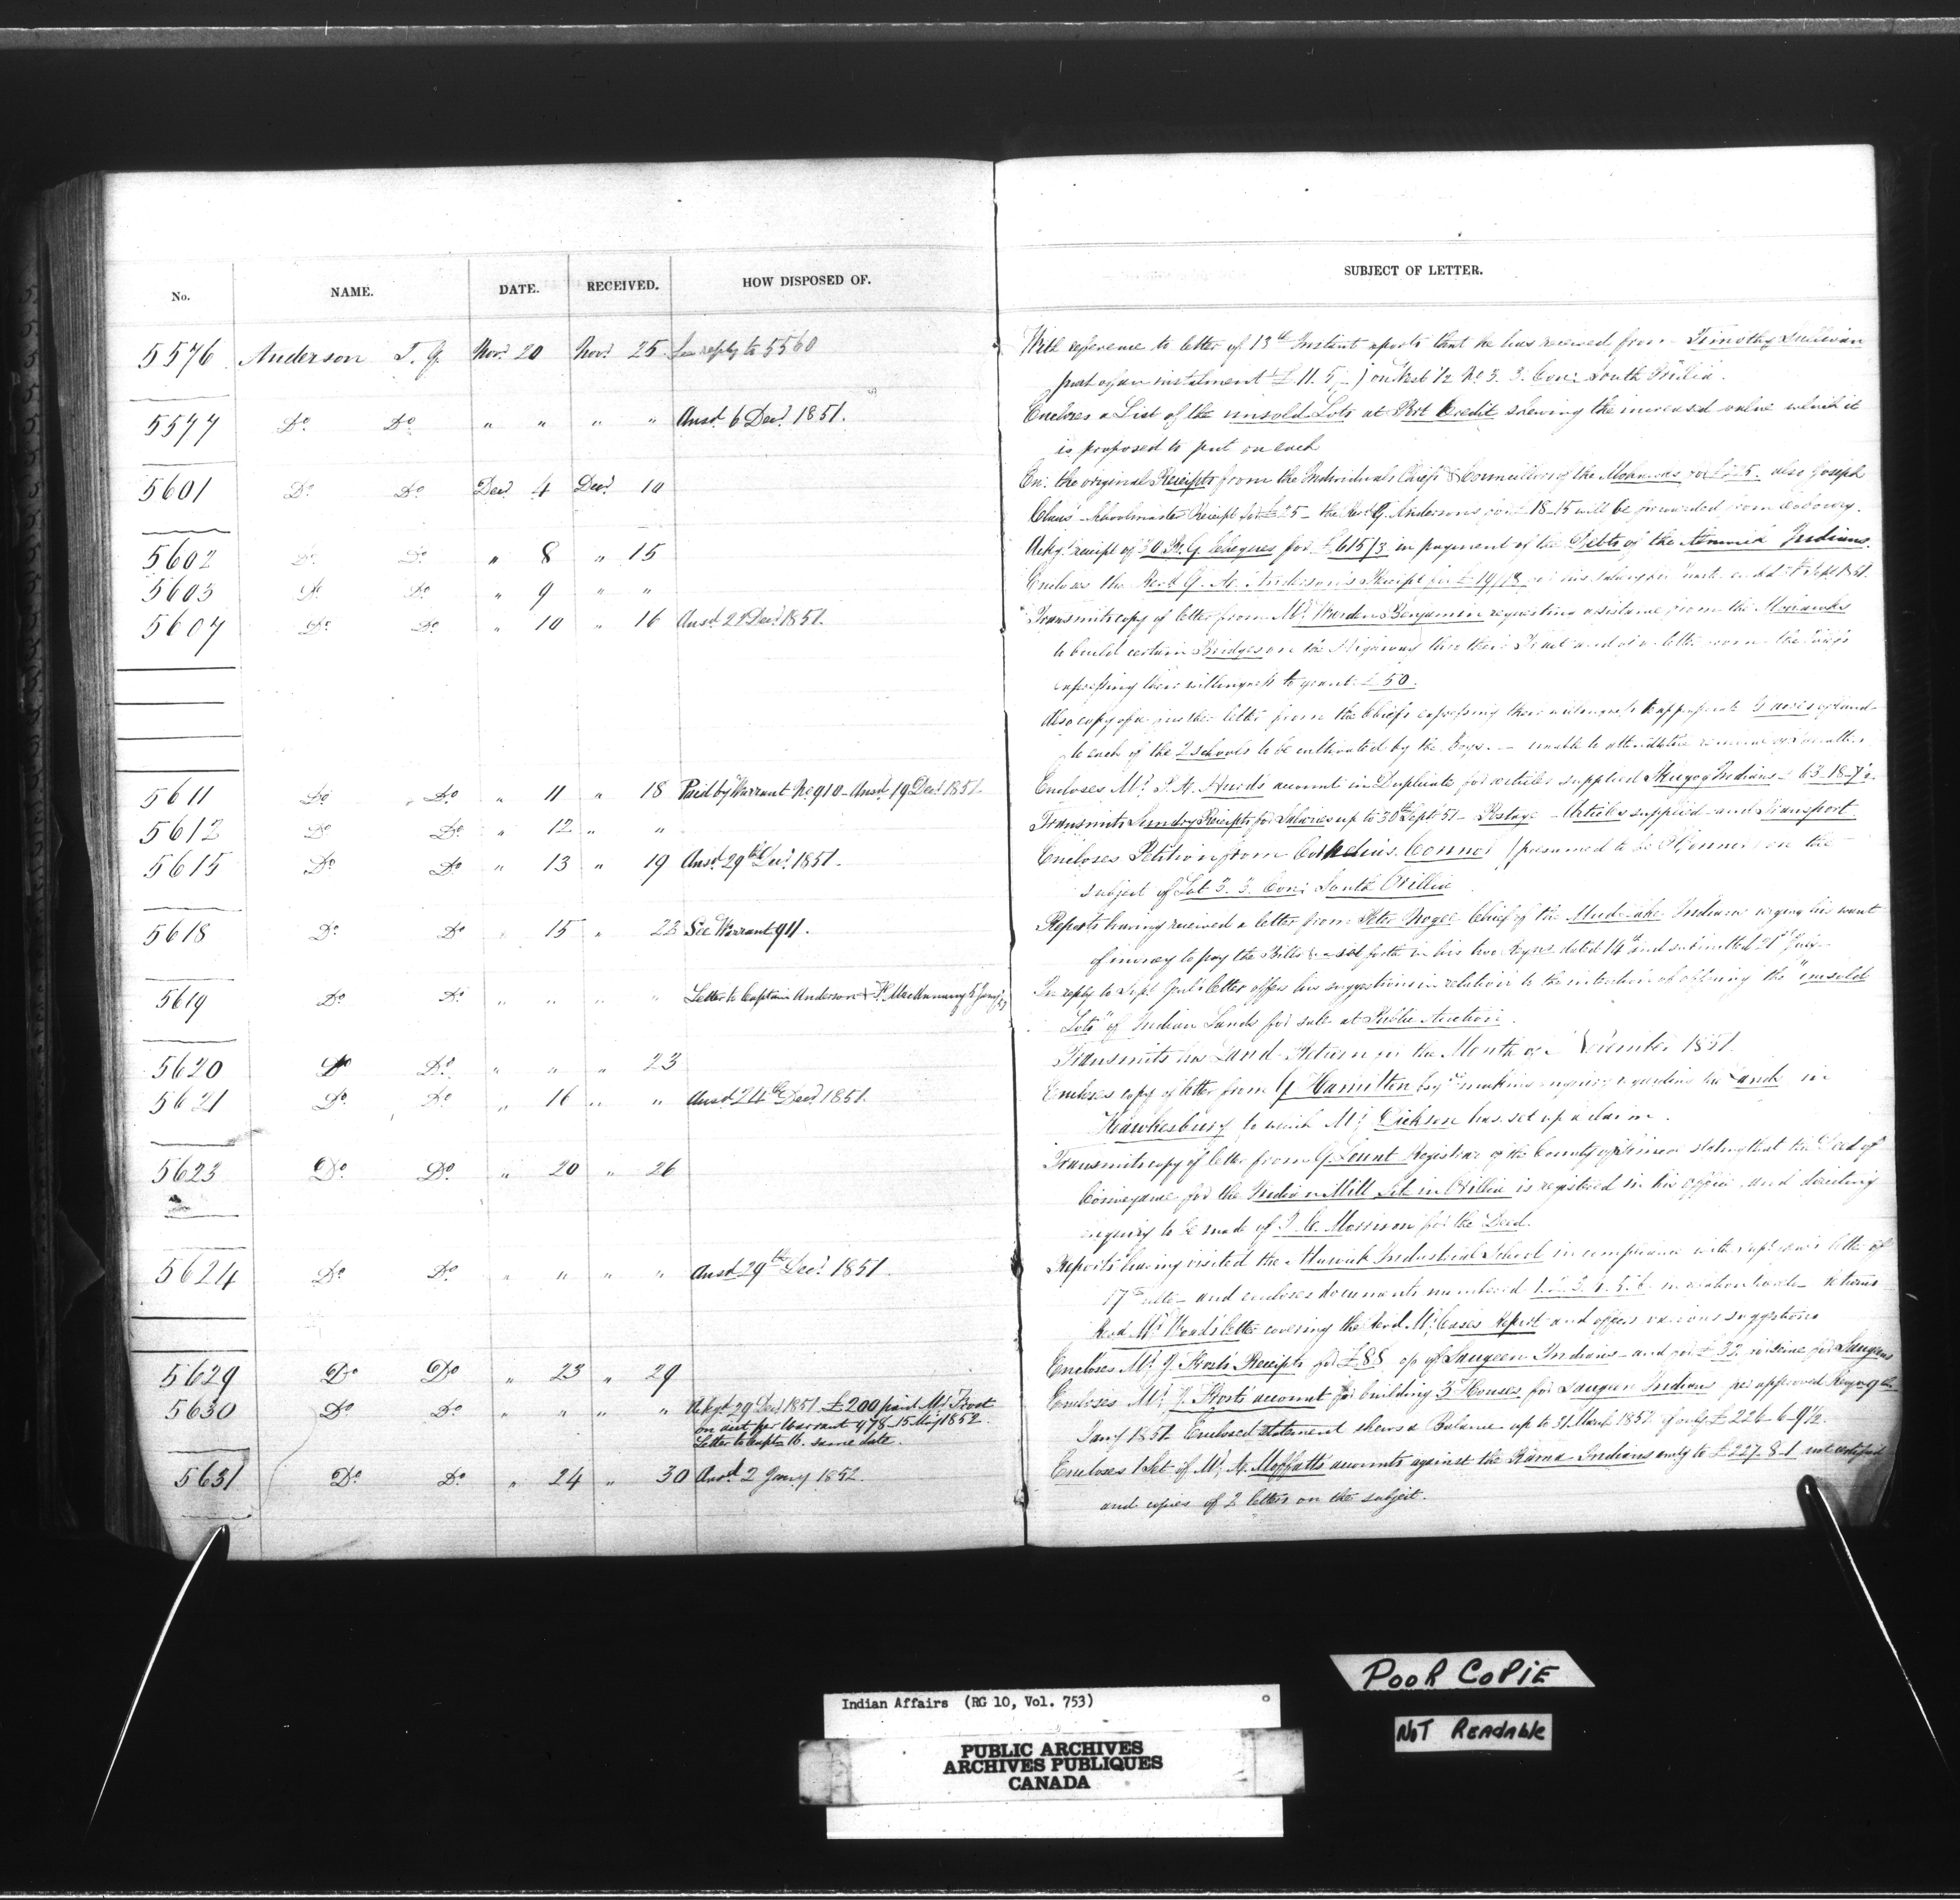 No. NAME. DATE. RECEIVED. HOW DISPOSED OF. SUBJECT OF LETTER.
5576 Anderson T. G. Novr 20 Novr 25 See reply to 5560 With reference to letter of 13th Instant reports that he has received from Timothy Sullivan
part of an instalment £11.5 on West 1/2 No 3. 3. Con: South Orillia.
5577 Do Do " " " " Ansd 6 Decr 1851. Encloses a List of the unsold Lots at Port Credit shewing the increased value which it
is proposed to put on each
5601 Do Do Decr 4 Decr 10 En: the original Receipts from the Individual Chiefs & Councillors of the Mohawks also Joseph
Claus' Schoolmaster Receipt for £25 – the Revd G. Andersons for £18–15 will be forwarded from
5602 Do Do " 8 " 15 Ackgs receipt of 30 R. G. Cheques for £615/3 in payment of the Debts of the Alnwick Indians.
5603 Do Do " 9 " " Encloses the Revd G. A. Anderson's Receipt for his salary
5607 Do Do " 10 " 16 Ansd 29 Decr 1851. Transmits copy of letter from Mr Warden Benjamin requesting assistance from the Mohawks
to build certain Bridges on the Highway thro their Tract and of a letter from the Chiefs
expressing their willingness to grant £50.
Also copy of a further letter from the Chiefs expressing their willingness to appropriate 5 acres of land
to each of the 2 schools to be cultivated by the boys. – unable to attend
5611 Do Do " 11 " 18 Paid by Warrant No 910 – Ansd 19 Decr 1851. Encloses Mr T. A. Hurds account in Duplicate for articles supplied Skugog Indians £63–18–7½
5612 Do Do " 12 " " Transmits Sundry Receipts for Salaries up to 30th Sept 51 – Postage – Articles supplied – and Transport
5615 Do Do " 13 " 19 Ansd 29th Decr 1851. Encloses Petition from Cornelius Connor (presumed to be O'Connor) on the
subject of Lot 3. 3. Con: South Orillia
5618 Do Do " 15 " 22 See Warrant 911. Reports having received a letter from Peter Nogee Chief of the Mud Lake Indians urging his want
of money to pay the Bills as set forth in his two Reqns dated 14th and submitted 21st July
5619 Do Do " " " " Letter to Captain Anderson & F. MacAnnany 5 Jany In reply to Supt Genls letter offers his suggestions in relation to the intention of offering the "unsold
Lots" of Indian Lands for sale at Public Auction.
5620 Do Do " " " 23 Transmits his Land Return for the Month of November 1851.
5621 Do Do " 16 " " Ansd 24th Decr 1851. Encloses copy of letter from G. Hamilton Esqre making inquiry regarding the Land in
Hawkesbury to which Mr Dickson has set up a claim.
5623 Do Do " 20 " 26 Transmits copy of letter from G. Lount Registrar of the County of Simcoe stating that the Deed of
Conveyance for the Indian Mill Site in Orillia is registered in his office and directing
inquiry to be made of J. C. Morrison for the Deed.
5624 Do Do " " " " Ansd 29th Decr 1851 Reports having visited the Alnwick Industrial School in compliance with letter of
17th ulto – and encloses documents numbered 1. 2. 3. 4. 5. 6. Returns
Revd Mr Woods letter covering the Revd Mr Cases Report and offers various suggestions
5629 Do Do " 23 " 29 Encloses Mr J. Frosts Receipts for £88 of Saugeen Indians – and for £32 for Saugeen
5630 Do Do " " " " Ackgd 29 Decr 1851. £200 paid Mr Frost
on acct per Warrant 978. 15 May 1852.
Letter to Capt A. same date.
Encloses Mr J. Frosts account for building 3 Houses for Saugeen Indians per approved
Jany 1851. Enclosed statement shews a Balance up to 31 March 1852 of only £226–6–9½.
5631 Do Do " 24 " 30 Ansd 2 Jany 1852. Encloses 1 Set of Mr A. Moffatts accounts against the Rama Indians amtg to £227–8–1 not certified
and copies of 2 letters on the subject.
POOR COPIE
NOT READABLE
Indian Affairs (RG 10, Vol. 753)
PUBLIC ARCHIVES
ARCHIVES PUBLIQUES
CANADA